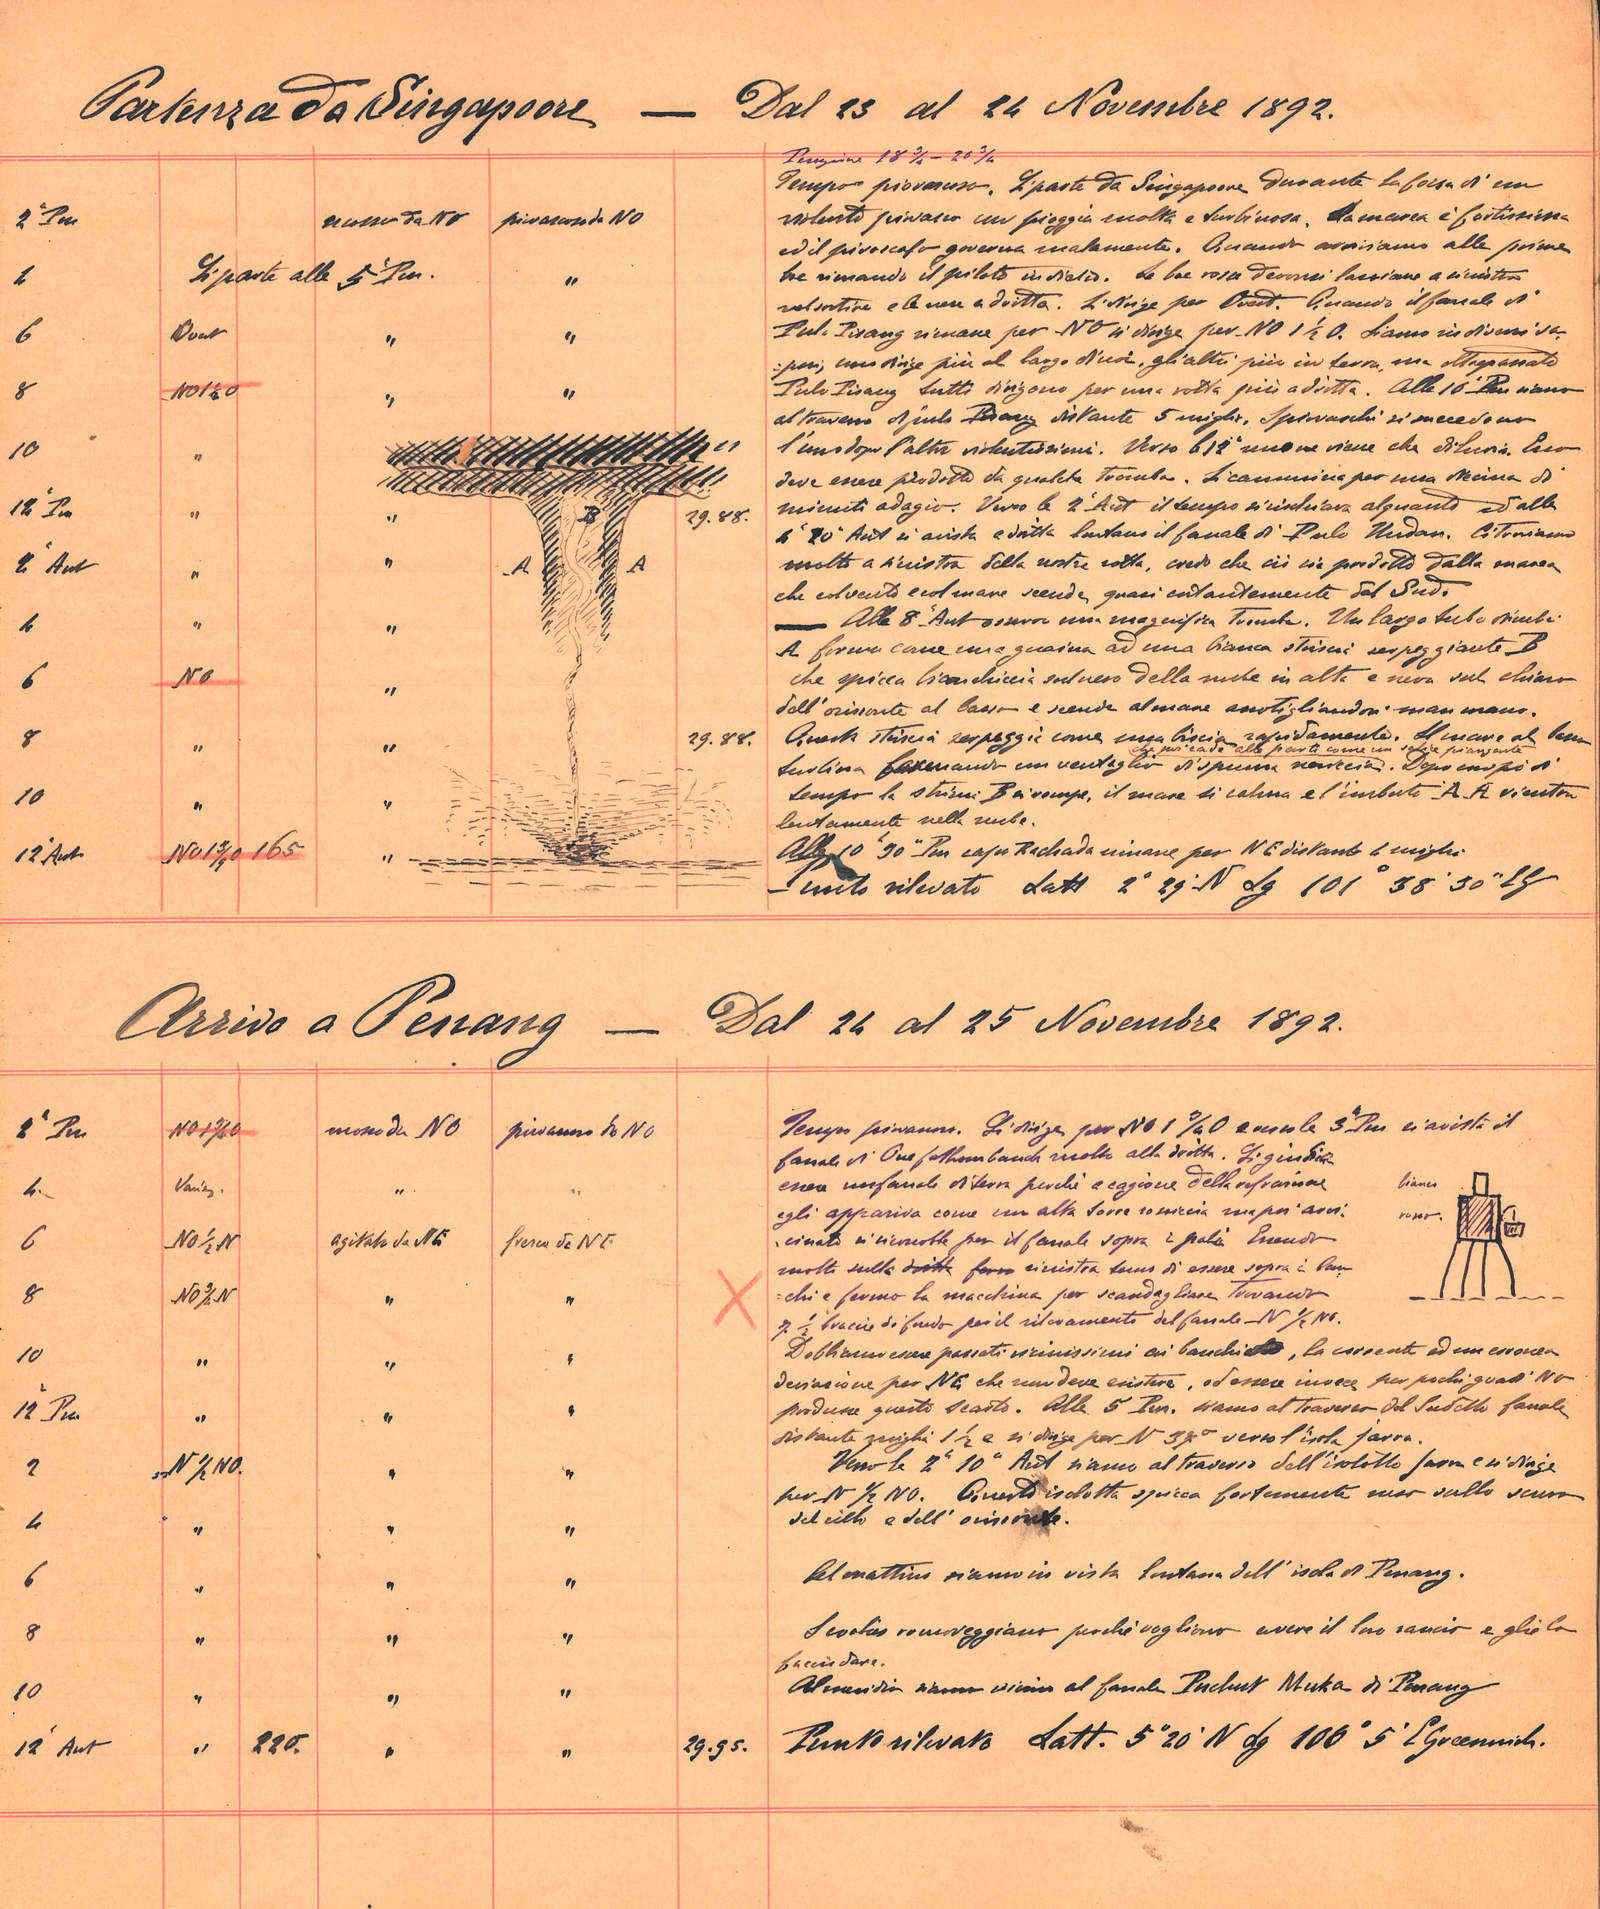 Partenza da Singapoore — Dal 23 al 24 Novembre 1892.
Pescagione 18 3/4 – 20 3/4
Tempo piovanoso. Si parte da Singapoore durante la forza di un
2ª Pm mosso da NO piovascoso da NO
violento piovasco con pioggia molta e turbinosa. La marea è fortissima
ed il piroscafo governa malamente. Quando arriviamo alle prime
4 Si parte alle 5 Pm. "
boe rimando il pilota indietro. Le boe rosse devonsi lasciare a sinistra
nel sortire e le nere a dritta. Si dirige per Ovest. Quando il fanale di
6 Ovest " "
Pulo Pisang rimane per NO si dirige per NO 1 1/2 O. Siamo in diversi va-
:pori, uno dirige più al largo di noi, gli altri più in terra, ma oltrepassato
8 NO 1 1/2 O " "
Pulo Pisang tutti dirigono per una rotta più a dritta. Alle 10 Pm siamo
al traverso di Pulo Pisang distante 5 miglia. I piovaschi si succedono
10 " "
l'uno dopo l'altro violentissimi. Verso le 12ª uno ne viene che diluvia. Esso
deve essere prodotto da qualche tromba. Si cammina per una decina di
12ª Pm " " 29.88.
minuti adagio. Verso le 2ª Ant il tempo si rischiara alquanto ed alle
4ª 20 Ant si avista a dritta lontano il fanale di Pulo Undan. Ci troviamo
2ª Ant " "
molto a sinistra della nostra rotta, credo che ciò sia prodotto dalla marea
che col vento e col mare scende quasi costantemente dal Sud.
4 " "
— Alle 8ª Ant osservo una magnifica Tromba. Un largo tubo
A forma come una guaina ad una bianca striscia serpeggiante B
6 NO "
che spicca bianchiccia sul nero della nube in alto e nera sul chiaro
dell'orizzonte al basso e scende al mare assottigliandosi man mano.
8 " " 29.88.
Questa striscia serpeggia come una biscia rapidamente. Il mare al basso
che poi cade alle parti come un salice piangente
turbina formando un ventaglio di spuma. Dopo un po' di
10 " "
tempo la striscia B si rompe, il mare si calma e l'imbuto A A rientra
lentamente nella nube.
12ª Ant NO 1 3/4 O 165 "
Alle 10ª 30 Pm capo Rachada rimane per NE distante 6 miglia
Punto rilevato Latt 2° 29' N Lg 101° 38' 30" EG
A B A
Arrivo a Penang — Dal 24 al 25 Novembre 1892.
2ª Pm NO 1 3/4 O mosso da NO piovanoso da NO
Tempo piovanoso. Si dirige per NO 1 3/4 O e verso le 3ª Pm si avista il
fanale di One fathom bank molto alla dritta. Si giudica
4 Variaz. " "
essere un fanale di terra perché a cagione della refrazione
bianco
egli appariva come un alta torre rossiccia ma poi avvi-
rosso.
6 NO 1/2 N agitato da NE fresco da NE
:cinato si riconobbe per il fanale sopra i pali. Essendo
molto sulla dritta sinistra temo di essere sopra i ban-
8 NO 3/4 N " "
:chi e fermo la macchina per scandagliare trovando
7 1/2 braccie di fondo poi il rilevamento del fanale N 1/2 NO.
10 " " "
Dobbiamo essere passati vicinissimi ai banchi, la corrente ed un erronea
deviazione per NE che non deve esistere, ed essere invece per pochi gradi NO
12ª Pm " " "
produsse questo scarto. Alle 5 Pm. siamo al traverso del sudetto fanale
distante miglia 1 1/2 e si dirige per N 37° verso l'isola Jarra.
2 N 1/2 NO. " "
Verso le 2ª 10 Ant siamo al traverso dell'isolotto Jarra e si dirige
per N 1/2 NO. Questo isolotto spicca fortemente nero sullo scuro
4 " " "
del cielo e dell'orizzonte.
6 " " "
Al mattino siamo in vista lontana dell'isola di Penang.
8 " " "
I coolies romoreggiano perché vogliono avere il loro rancio e glie lo
faccio dare.
10 " " "
Al meridio siamo vicino al fanale Puchut Muka di Penang
12ª Ant " 220. " " 29.95.
Punto rilevato Latt. 5° 20' N Lg 100° 5' E Greenwich.